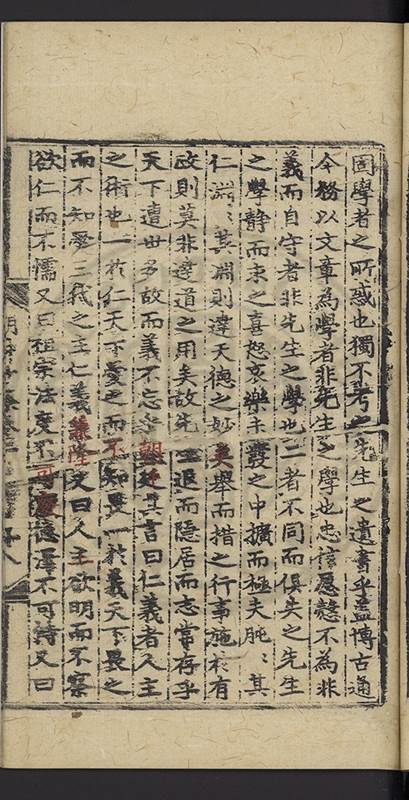 固學者之所惑也獨不考之先生之遺書乎蓋博古通
今務以文章為學者非先生之學也忠信愿慤不為非
義而自守者非先生之學也二者不同而俱失之先生
之學靜而求之喜怒哀樂未發之中擴而極夫肫〻其
仁淵〻其淵則達天德之妙矣舉而措之行事施於有
政則莫非達道之用矣故先生退而隱居而志常存乎
天下遭世多故而義不忘乎朝廷其言曰仁義者人主
之術也一於仁天下愛之而不知畏一於義天下畏之
而不知愛三代之主仁義兼隆又曰人主欲明而不察
欲仁而不懦又曰祖宗法度不可廢德澤不可恃又曰